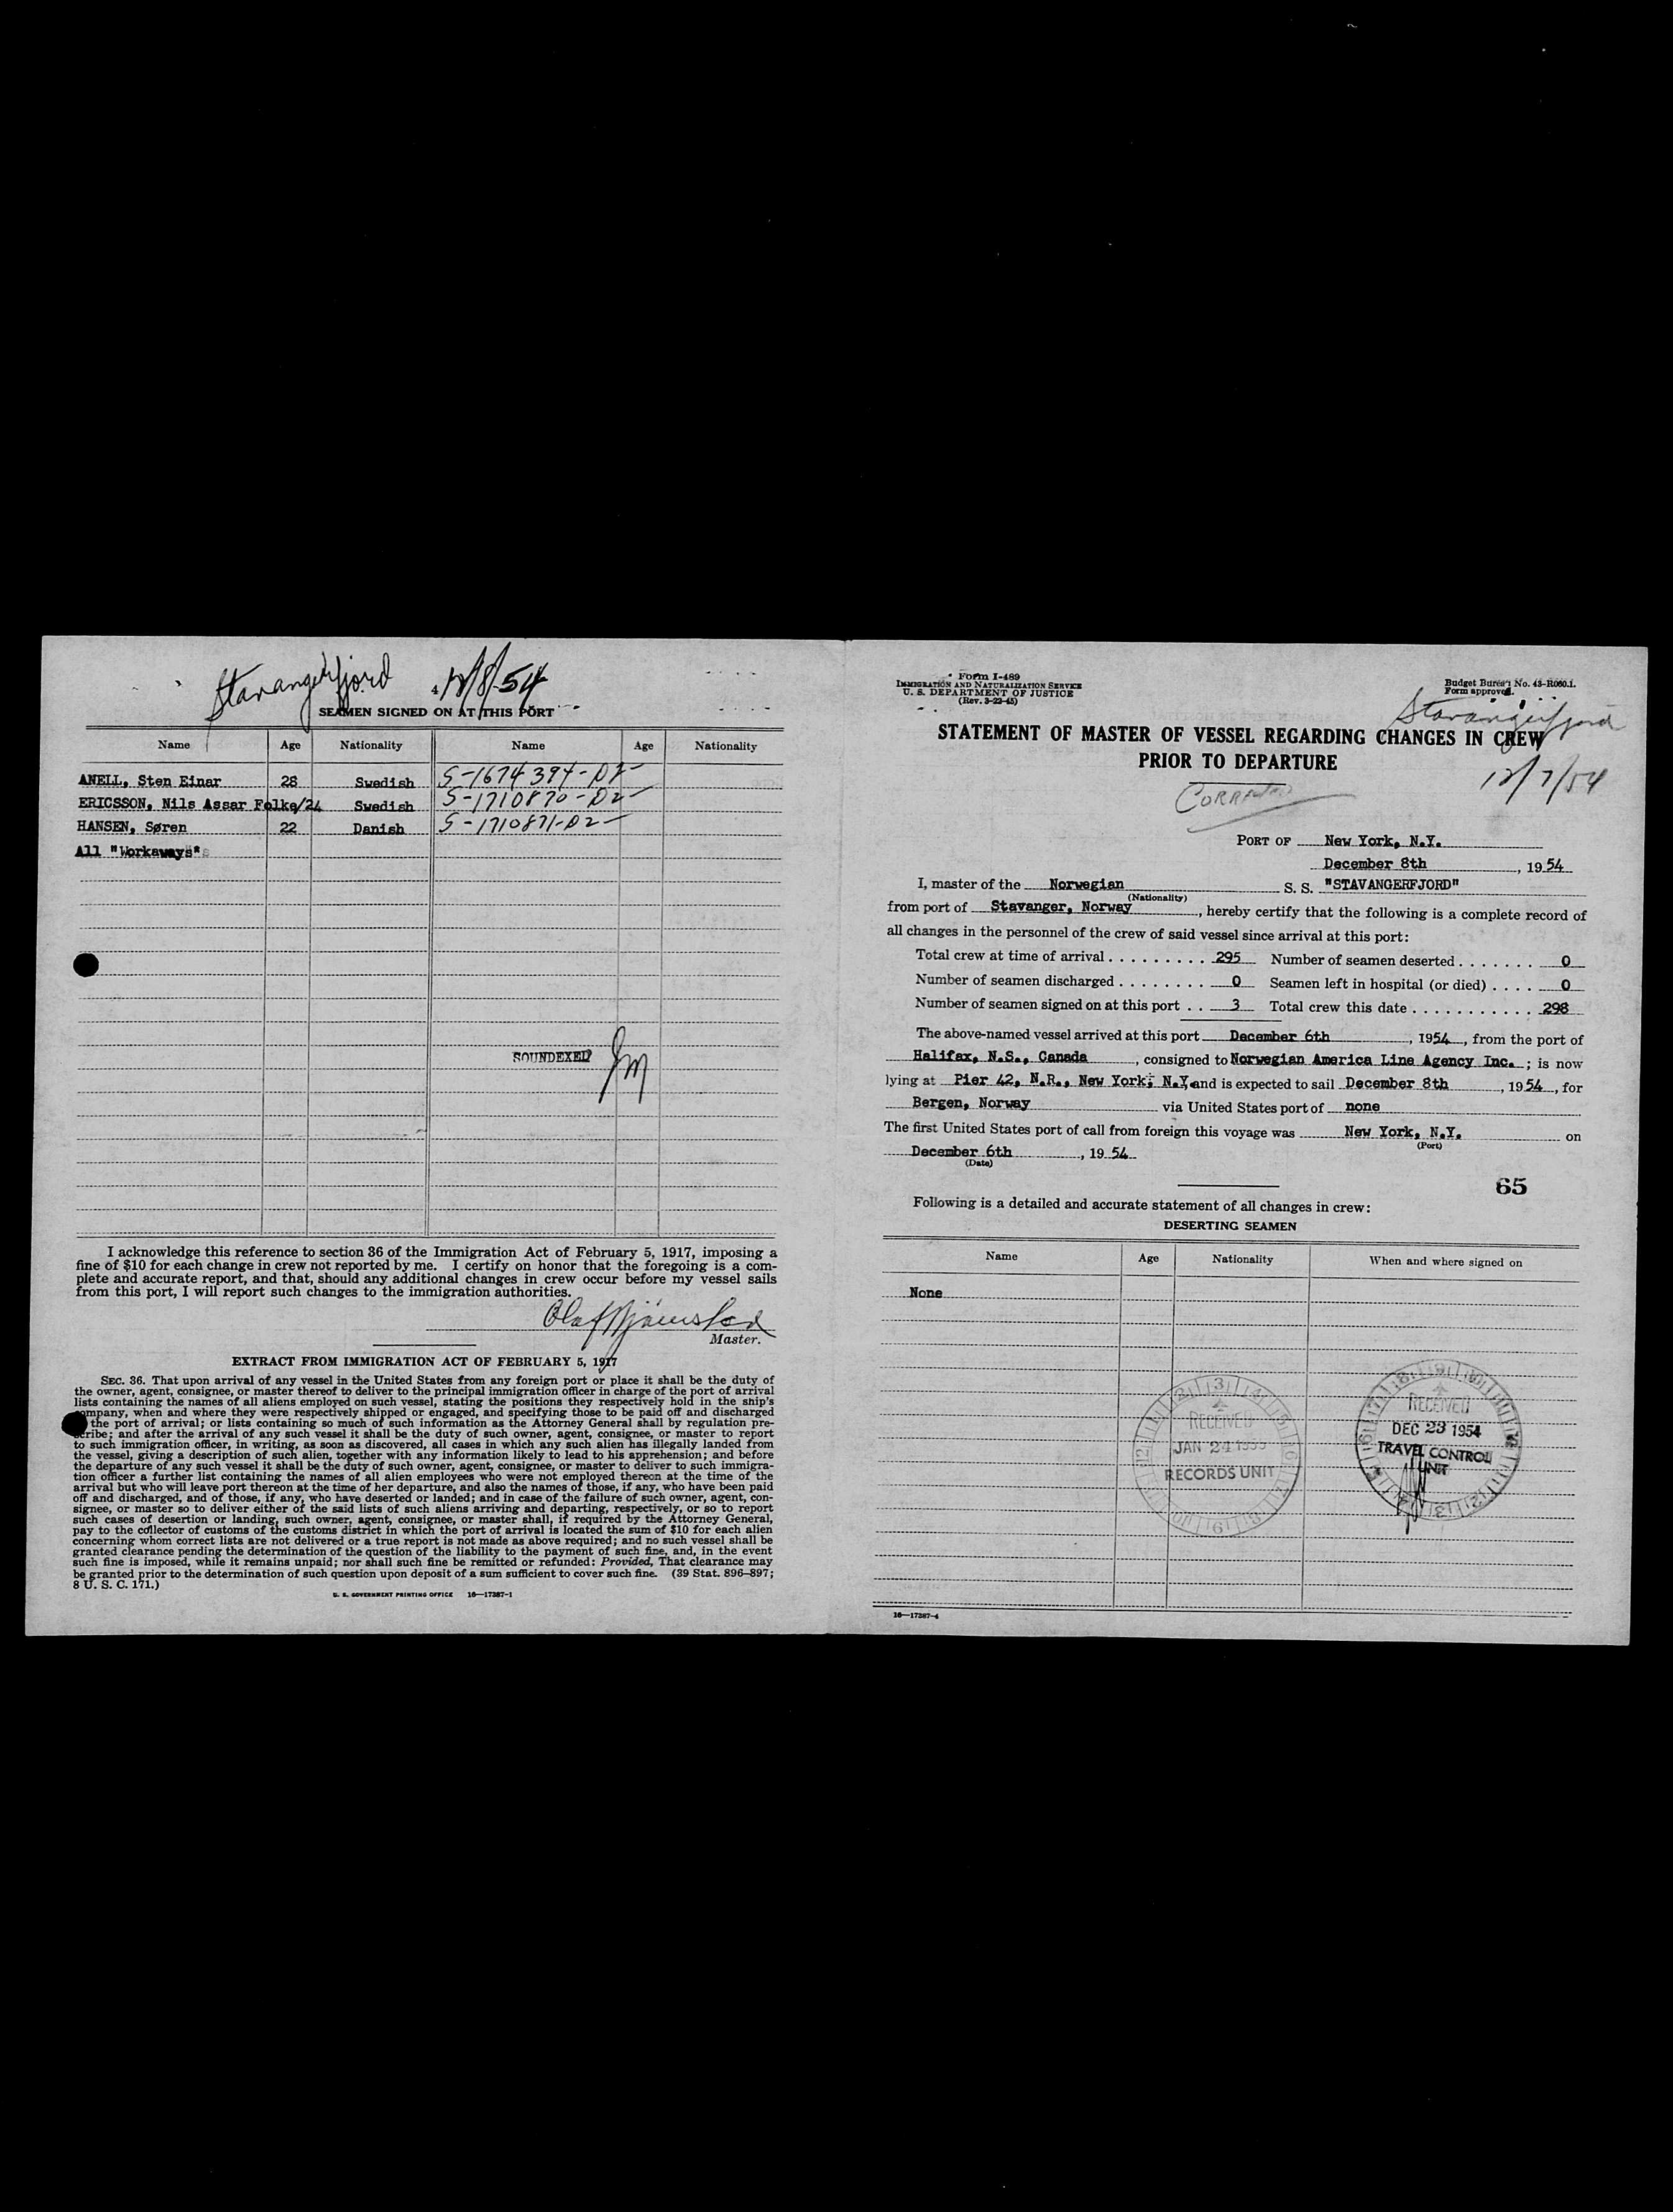 Stavangerfjord 12/8/54
SEAMEN SIGNED ON AT THIS PORT
Name Age Nationality Name Age Nationality
ANELL, Sten Einar 28 Swedish S-1674394-D2-
ERICSSON, Nils Assar Folke/24 Swedish S-1710870-D2-
HANSEN, Søren 22 Danish S-1710871-D2-
All "Workaways"
SOUNDEXED
I acknowledge this reference to section 36 of the Immigration Act of February 5, 1917, imposing a
fine of $10 for each change in crew not reported by me. I certify on honor that the foregoing is a com-
plete and accurate report, and that, should any additional changes in crew occur before my vessel sails
from this port, I will report such changes to the immigration authorities.
Master.
EXTRACT FROM IMMIGRATION ACT OF FEBRUARY 5, 1917
SEC. 36. That upon arrival of any vessel in the United States from any foreign port or place it shall be the duty of
the owner, agent, consignee, or master thereof to deliver to the principal immigration officer in charge of the port of arrival
lists containing the names of all aliens employed on such vessel, stating the positions they respectively hold in the ship's
company, when and where they were respectively shipped or engaged, and specifying those to be paid off and discharged
the port of arrival; or lists containing so much of such information as the Attorney General shall by regulation pre-
scribe; and after the arrival of any such vessel it shall be the duty of such owner, agent, consignee, or master to report
to such immigration officer, in writing, as soon as discovered, all cases in which any such alien has illegally landed from
the vessel, giving a description of such alien, together with any information likely to lead to his apprehension; and before
the departure of any such vessel it shall be the duty of such owner, agent, consignee, or master to deliver to such immigra-
tion officer a further list containing the names of all alien employees who were not employed thereon at the time of the
arrival but who will leave port thereon at the time of her departure, and also the names of those, if any, who have been paid
off and discharged, and of those, if any, who have deserted or landed; and in case of the failure of such owner, agent, con-
signee, or master so to deliver either of the said lists of such aliens arriving and departing, respectively, or so to report
such cases of desertion or landing, such owner, agent, consignee, or master shall, if required by the Attorney General,
pay to the collector of customs of the customs district in which the port of arrival is located the sum of $10 for each alien
concerning whom correct lists are not delivered or a true report is not made as above required; and no such vessel shall be
granted clearance pending the determination of the question of the liability to the payment of such fine, and, in the event
such fine is imposed, while it remains unpaid; nor shall such fine be remitted or refunded: Provided, That clearance may
be granted prior to the determination of such question upon deposit of a sum sufficient to cover such fine. (39 Stat. 896–897;
8 U. S. C. 171.)
U. S. GOVERNMENT PRINTING OFFICE 16—17387-1
Form I-489
IMMIGRATION AND NATURALIZATION SERVICE
U. S. DEPARTMENT OF JUSTICE
(Rev. 3-22-45)
Budget Bureau No. 43-R060.1.
Form approved.
Stavangerfjord
STATEMENT OF MASTER OF VESSEL REGARDING CHANGES IN CREW
PRIOR TO DEPARTURE
12/7/54
CORRECTED
PORT OF New York, N.Y.
December 8th, 1954
I, master of the Norwegian S. S. "STAVANGERFJORD"
(Nationality)
from port of Stavanger, Norway, hereby certify that the following is a complete record of
all changes in the personnel of the crew of said vessel since arrival at this port:
Total crew at time of arrival . . . . . . . . . 295 Number of seamen deserted . . . . . . . 0
Number of seamen discharged . . . . . . . . 0 Seamen left in hospital (or died) . . . . 0
Number of seamen signed on at this port . . 3 Total crew this date . . . . . . . . . . . 298
The above-named vessel arrived at this port December 6th, 1954, from the port of
Halifax, N.S., Canada, consigned to Norwegian America Line Agency Inc. ; is now
lying at Pier 42, N.R., New York, N.Y. and is expected to sail December 8th, 1954, for
Bergen, Norway via United States port of none
The first United States port of call from foreign this voyage was New York, N.Y. on
(Port)
December 6th, 1954
(Date)
65
Following is a detailed and accurate statement of all changes in crew:
DESERTING SEAMEN
Name Age Nationality When and where signed on
None
RECEIVED
JAN 24 1955
RECORDS UNIT
RECEIVED
DEC 23 1954
TRAVEL CONTROL
UNIT
16—17387-4